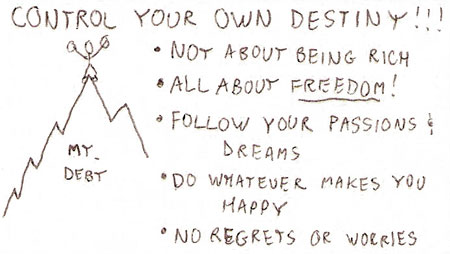 CONTROL YOUR OWN DESTINY!!!
• NOT ABOUT BEING RICH
• ALL ABOUT FREEDOM!
• FOLLOW YOUR PASSIONS &
DREAMS
• DO WHATEVER MAKES YOU
HAPPY
• NO REGRETS OR WORRIES
MY
DEBT